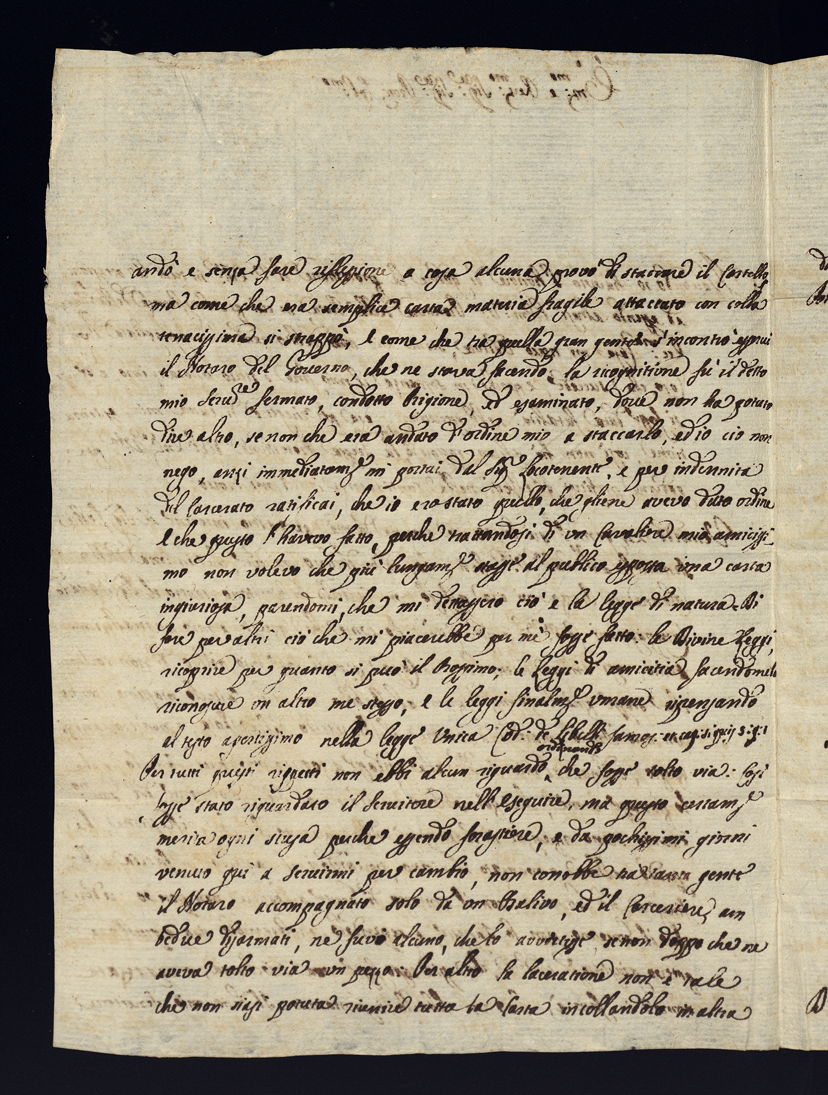 andò e senza fare riflessione a cosa alcuna provò di staccare il Cartello
ma come che era semplice carta materia fragile attaccato con colla
tenacissima si strappò, e come che tra quella gran gente s'incontrò esservi
il Notaro del Governo, che ne stava facendo la ricognitione fù il detto
mio Serv:re fermato, condotto Prigione, ed esaminato, dove non ha potuto
dire altro, se non che era andato d'ordine mio a staccarlo, ed io ciò non
nego, anzi immediatam:te mi portai dal Sig:r Locotenente, e per indennità
del Carcerato ratificai, che io ero stato quello, che gliene avevo dato ordine
e che questo l'havevo fatto, perche trattandosi di un Cavaliere mio amicissi
mo non volevo che più lungam:te stasse al publico esposta una carta
ingiuriosa, parendomi, che mi dettassero ciò e la legge di natura di
fare per altri ciò che mi piacerebbe per mè fosse fatto: le Divine Leggi,
ricoprire per quanto si può il Prossimo; le leggi di amicitia facendomelo
riconoscere un altro me stesso, e le leggi finalm:te umane ripensando
al testo apertissimo nella legge Unica Cod: de Libell: famos: et cap: si quis 5. q: 1
ordinando
Per tutti questi rispetti non ebbi alcun riguardo, che fosse tolto via: Così
fosse stato riguardato il Servitore nell'eseguire, mà questo certam:te
merita ogni scusa perche essendo forastiere, e da pochissimi giorni
venuto quì a servirmi per cambio, non conobbe tra tanta gente
il Notaro accompagnato solo da un Balivo, ed il Carceriere, am
bedue disarmati, ne fuvi alcuno, che lo avvertisse se non doppo che ne
aveva tolto via un pezzo: Per altro la laceratione non è tale
che non siasi potuta riunire tutta la Carta incollandola in altra